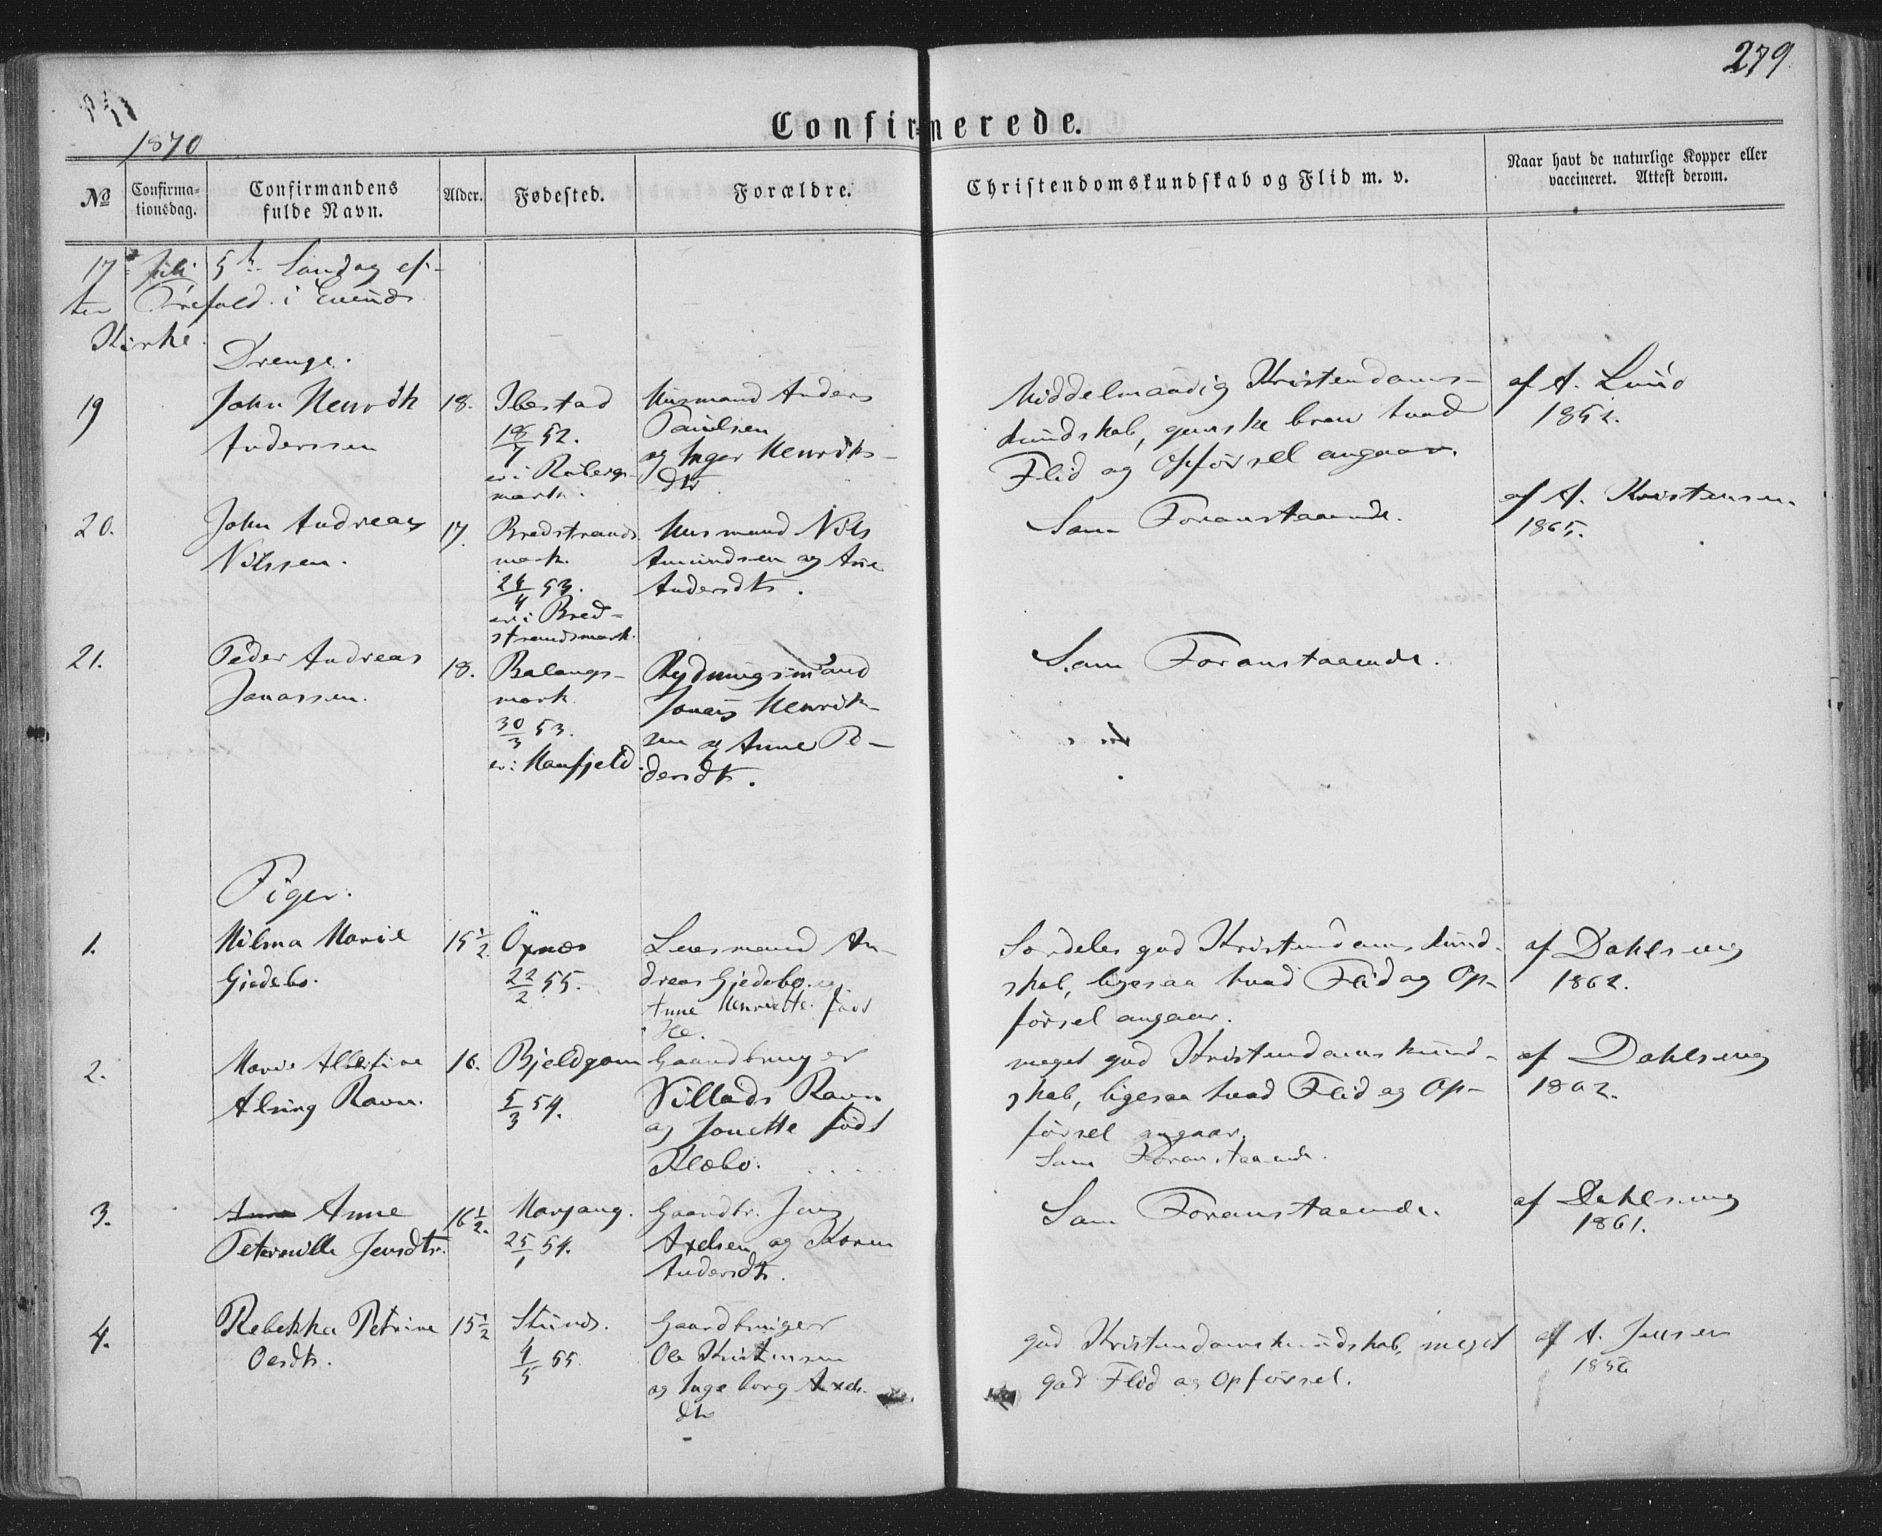 279.
1870
Confirmerede.
№
Confirma-
tionsdag.
Confirmandens
fulde Navn.
Alder.
Fødested.
Forældre.
Christendomskundskab og Flid m. v.
Naar havt de naturlige Kopper eller
vaccineret. Attest derom.
17 Juli 5te Søndag ef-
ter Trefold. i Evinds
Kirke.
Drenge.
19
John Henrik
Anderssen
18.
Ibestad
18/7 52.
er i Raberg-
mark.
Husmand Anders
Paulsen
og Inger Henriks-
dtr
Middelmaadig Kristendoms-
kundskab, ganske brav hvad
Flid og Opførsel angaar.
af A. Lund
1852.
20.
John Andreas
Nilssen.
17.
Bredstrands
mark.
24/4 53.
er i Bred-
strandsmark.
Husmand Nils
Amundsen og Ane
Andersdtr.
Som Foranstaaende.
af A. Kristensen
1865.
21.
Peder Andreas
Jonassen.
18.
Balangs-
mark
30/3 53.
er i Haafjeld.
Rydningsmand
Jonas Henrik-
sen og Anne Pe-
dersdtr.
Som Foranstaaende.
Piger.
1.
Hilma Marie
Gjedebo.
15 1/2
Öxnæs
22/2 55.
Leesmand An-
dreas Gjedebo og
Anne Henriette født
Særdeles god Kristendomskund-
skab, ligesaa hvad Flid og Op-
førsel angaar.
af Dahlseng
1862.
2.
Marie Albertine
Alsing Ravn.
16.
Bjeldgam
5/3 54.
Gaardbruger
Villads Ravn
og Jonette født
Klæbo.
meget god Kristendomskund-
skab, ligesaa hvad Flid og Op-
førsel angaar.
Som Foranstaaende.
af Dahlseng
1862.
3.
Anna Anne
Peternille Jensdtr.
16 1/2.
Harjang.
25/1 54.
Gaardbr. Jens
Axelsen og Karen
Andersdtr.
Som Foranstaaende.
af Dahlseng
1861.
4.
Rebekka Petrine
Olesdtr.
15 1/2
Stunds.
4/5 55.
Gaardbruger
Ole Kristensen
og Ingeborg Axels-
dtr
god Kristendomskundskab, meget
god Flid og Opførsel.
af A. Jensen
1856